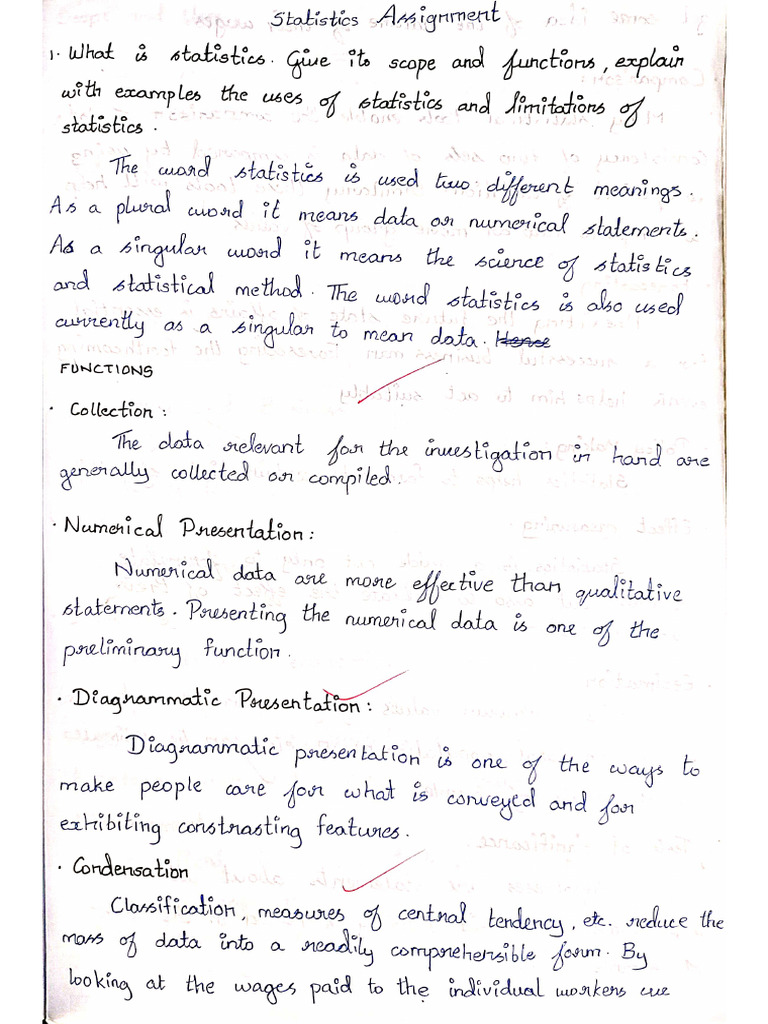 Statistics Assignment
1. What is statistics. Give its scope and functions, explain
with examples the uses of statistics and limitations of
statistics.
The word statistics is used two different meanings.
As a plural word it means data or numerical statements.
As a singular word it means the science of statistics
and statistical method. The word statistics is also used
currently as a singular to mean data. Hence
FUNCTIONS
· Collection :
The data relevant for the investigation in hand are
generally collected or compiled.
· Numerical Presentation :
Numerical data are more effective than qualitative
statements. Presenting the numerical data is one of the
preliminary function.
· Diagrammatic Presentation :
Diagrammatic presentation is one of the ways to
make people care for what is conveyed and for
exhibiting constrasting features.
· Condensation
Classification, measures of central tendency, etc. reduce the
mass of data into a readily comprehersible form. By
looking at the wages paid to the individual workers we